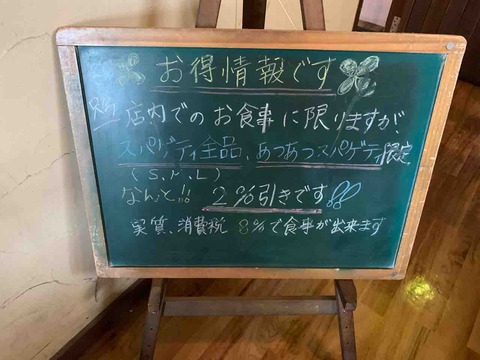 お得情報です
店内でのお食事に限りますが、
スパゲティ全品、あつあつスパゲティ限定
(S,M,L)
なんと!! 2%引きです
実質、消費税 8%で食事が出来ます